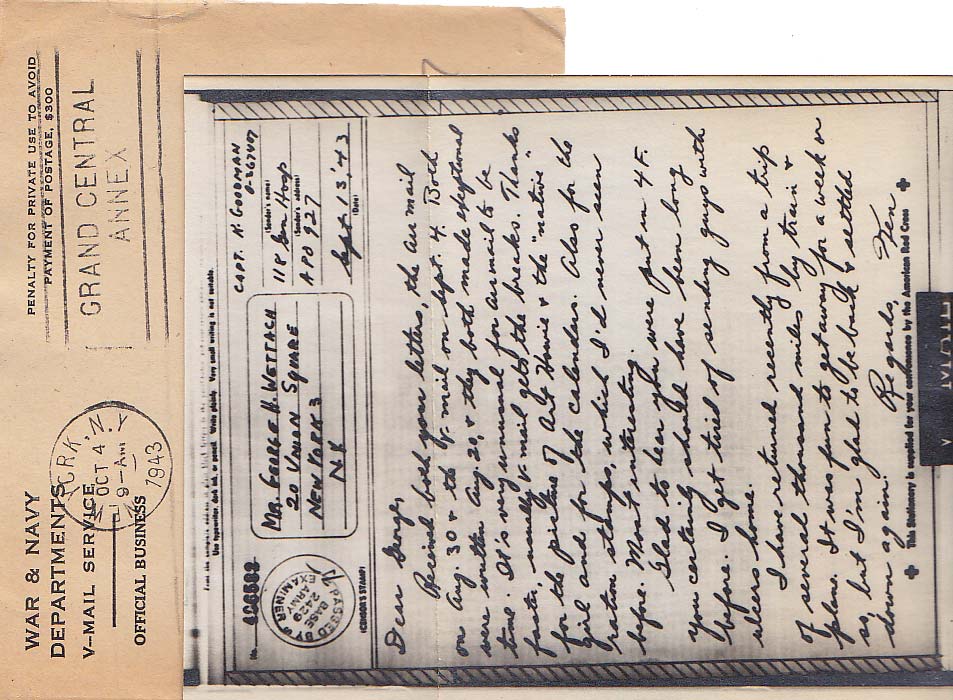 WAR & NAVY
DEPARTMENTS
V-MAIL SERVICE
OFFICIAL BUSINESS
PENALTY FOR PRIVATE USE TO AVOID
PAYMENT OF POSTAGE, $300
GRAND CENTRAL
ANNEX
YORK, N.Y.
OCT 4
9-AM
1943
Use typewriter, dark ink, or pencil. Write plainly. Very small writing is not suitable.
No.
PASSED BY
BASE
2429
ARMY
EXAMINER
(CENSOR'S STAMP)
MR. GEORGE H. WETTACH
20 UNION SQUARE
NEW YORK 3
N.Y.
CAPT. K. GOODMAN
(Sender's name)
118 Gen Hosp
(Sender's address)
APO 927
Sept 13, '43
(Date)
Dear George,
Received both your letters, the air mail
on Aug. 30 & the V-mail on Sept. 4. Both
were written Aug 20, & they both made exceptional
time. It's very unusual for airmail to be
faster, usually V-mail gets the breaks. Thanks
for the picture of Art Howie & the "native"
girl and for the calender. Also for the
ration stamps, which I'd never seen
before. Most interesting.
Glad to hear you were put in 4F.
you certainly should have been long
before. I get tired of sending guys with
ulcers home.
I have returned recently from a trip
of several thousand miles by train &
plane. It was fun to get away for a week or
so, but I'm glad to be back & settled
down again.
Regards,
Ken
This Stationery is supplied for your convenience by the American Red Cross
V MAIL